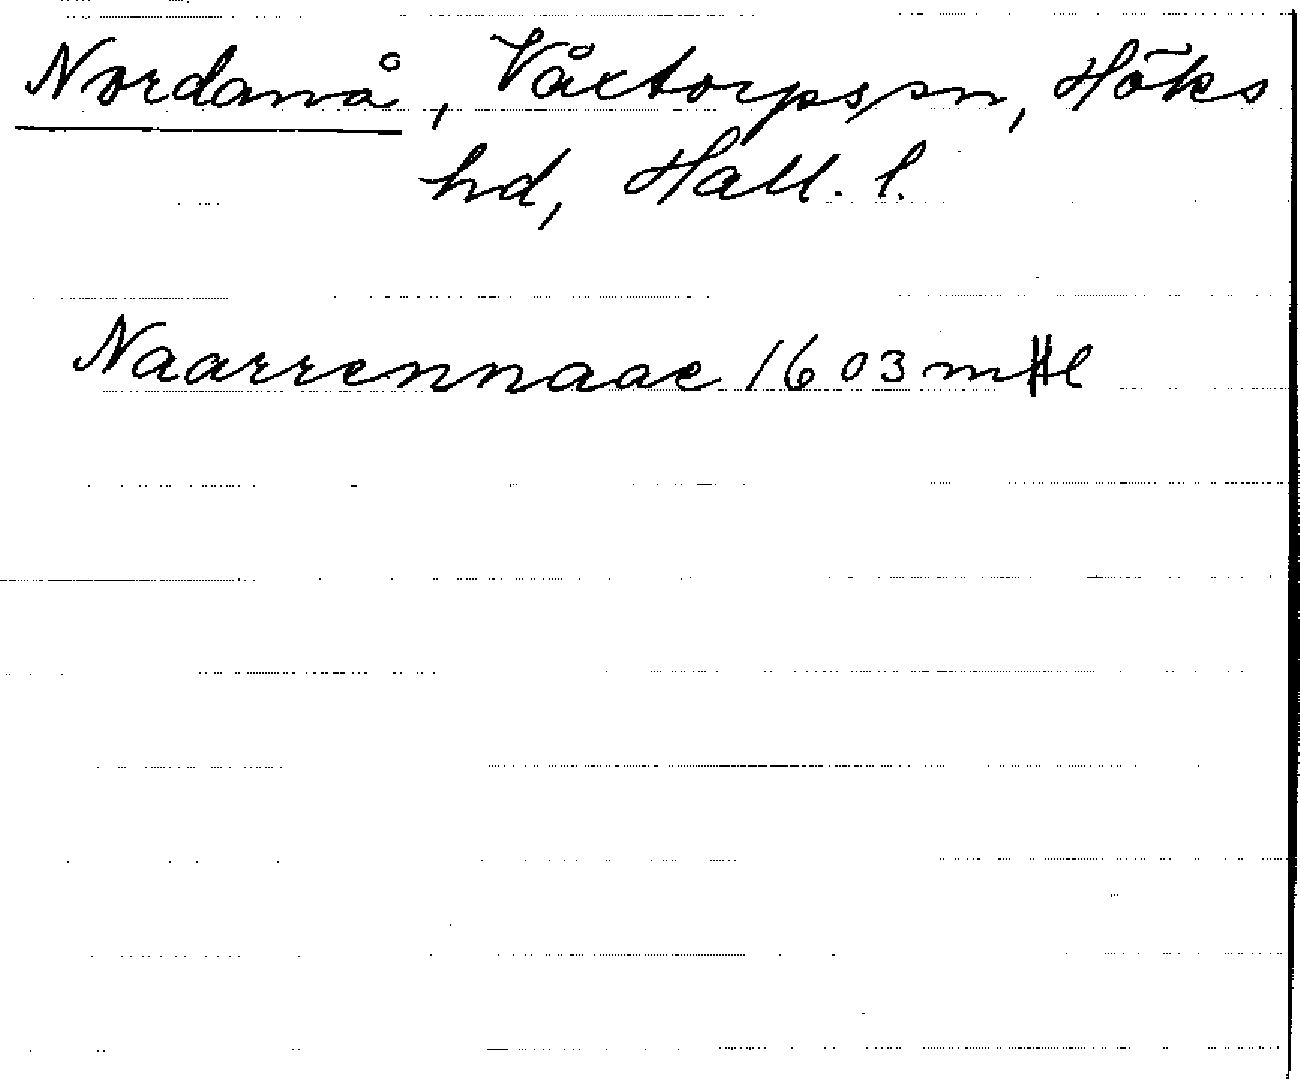 Nordanå, Våxtorps sn, Höks
hd, Hall. l.
Naarrennaae 1603 mHl